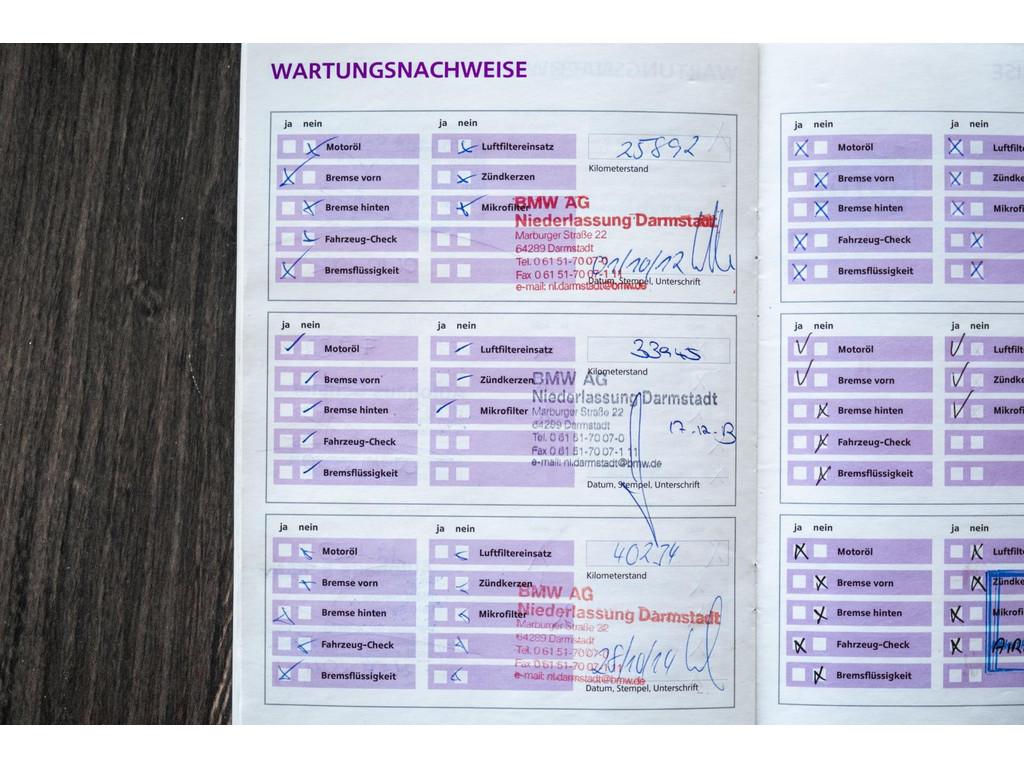 WARTUNGSNACHWEISE
ja nein
ja nein
Motoröl
Luftfiltereinsatz
25892
Kilometerstand
Bremse vorn
Zündkerzen
Bremse hinten
Mikrofilter
Fahrzeug-Check
Bremsflüssigkeit
BMW AG
Niederlassung Darmstadt
Marburger Straße 22
64289 Darmstadt
Tel. 0 61 51-70 07-0
Fax 0 61 51-70 07-1 11
e-mail: nl.darmstadt@bmw.de
31/10/12
Datum, Stempel, Unterschrift
ja nein
ja nein
Motoröl
Luftfiltereinsatz
33945
Kilometerstand
Bremse vorn
Zündkerzen
Bremse hinten
Mikrofilter
Fahrzeug-Check
Bremsflüssigkeit
BMW AG
Niederlassung Darmstadt
Marburger Straße 22
64289 Darmstadt
Tel. 0 61 51-70 07-0
Fax 0 61 51-70 07-1 11
e-mail: nl.darmstadt@bmw.de
17.12.13
Datum, Stempel, Unterschrift
ja nein
ja nein
Motoröl
Luftfiltereinsatz
40234
Kilometerstand
Bremse vorn
Zündkerzen
Bremse hinten
Mikrofilter
Fahrzeug-Check
Bremsflüssigkeit
BMW AG
Niederlassung Darmstadt
Marburger Straße 22
64289 Darmstadt
Tel. 0 61 51-70 07-0
Fax 0 61 51-70 07-1 11
e-mail: nl.darmstadt@bmw.de
28/10/14
Datum, Stempel, Unterschrift
ja nein
ja nein
Motoröl
Luftfilte
Bremse vorn
Zündke
Bremse hinten
Mikrofi
Fahrzeug-Check
Bremsflüssigkeit
ja nein
ja nein
Motoröl
Luftfilte
Bremse vorn
Zündke
Bremse hinten
Mikrofi
Fahrzeug-Check
Bremsflüssigkeit
ja nein
ja nein
Motoröl
Luftfilte
Bremse vorn
Zündke
Bremse hinten
Mikrofil
Fahrzeug-Check
Bremsflüssigkeit